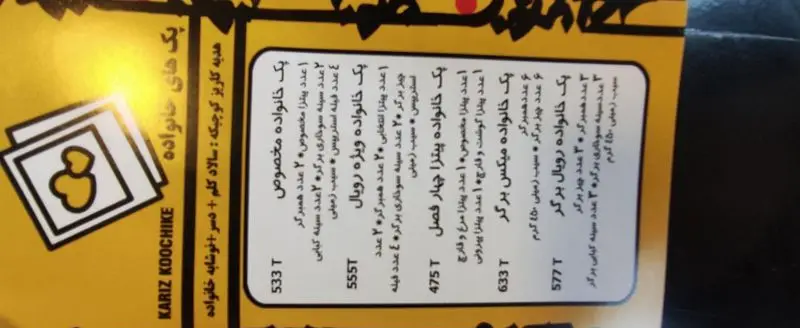 KARIZ KOOCHIKE
پک های خانواده
هدیه کاریز کوچیکه : سالاد کلم + دسر + نوشابه خانواده
پک خانواده مخصوص
533 T
۱ عدد پیتزا مخصوص * ۲ عدد همبرگر
۲ عدد سینه سوخاری برگر * ۲ عدد سینه کبابی
٤ عدد فیله استریپس * سیب زمینی
پک خانواده ویژه رویال
555T
۱ عدد پیتزا انتخابی * ۲ عدد همبرگر * ۲ عدد
چیز برگر * ۲ عدد سینه سوخاری برگر * ٤ عدد فیله
استریپس * سیب زمینی
پک خانواده پیتزا چهار فصل
475 T
۱ عدد پیتزا مخصوص * ۱ عدد پیتزا مرغ و قارچ
۱ عدد پیتزا گوشت و قارچ * ۱ عدد پیتزا پپرونی
پک خانواده میکس برگر
633 T
۶ عدد همبرگر
۶ عدد چیز برگر * سیب زمینی ٤٥٠ گرم
پک خانواده رویال برگر
577 T
۳ عدد همبرگر * ۳ عدد چیز برگر
۳ عدد سینه سوخاری برگر * ۳ عدد سینه کبابی برگر
سیب زمینی ٤٥٠ گرم